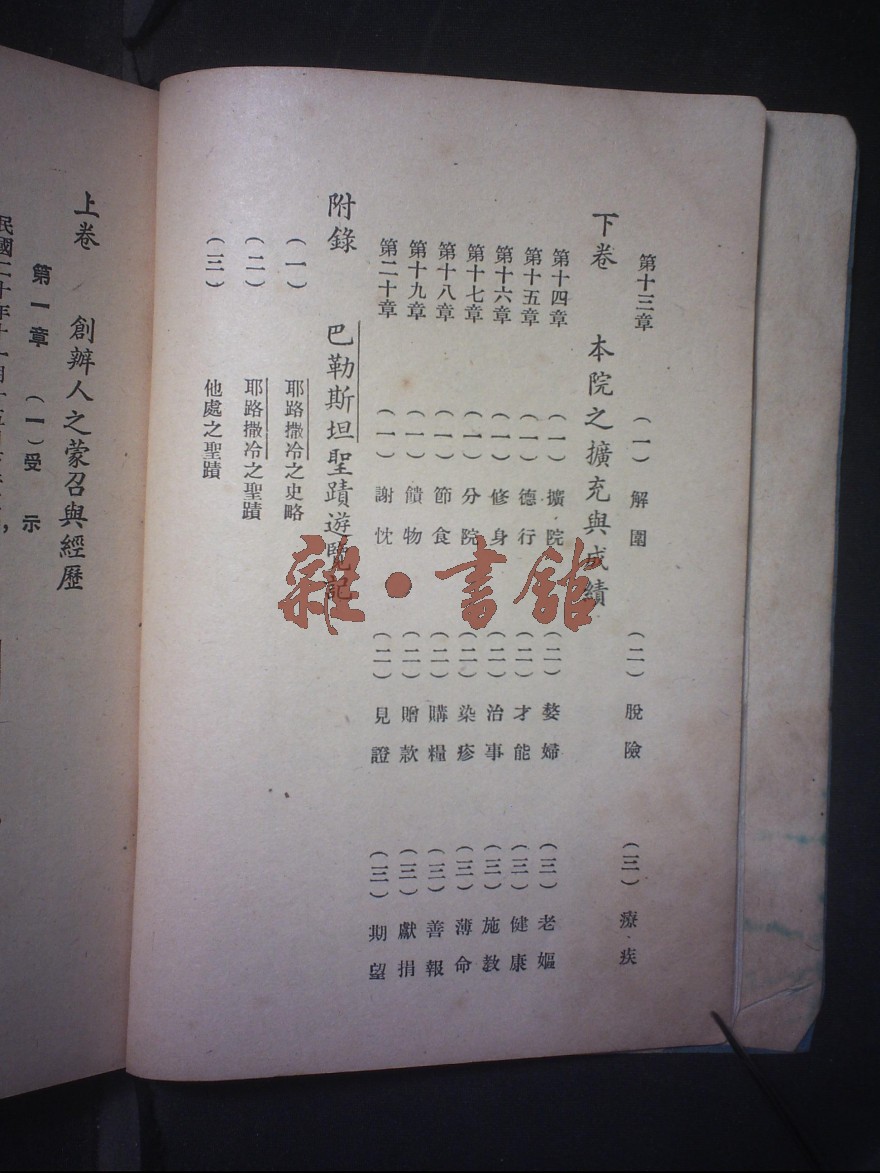 第十三章 (一) 解圍 (二) 脫險 (三) 療疾
下卷 本院之擴充與成績
第十四章 (一) 擴院 (二) 嫠婦 (三) 老嫗
第十五章 (一) 德行 (二) 才能 (三) 健康
第十六章 (一) 修身 (二) 治事 (三) 施教
第十七章 (一) 分院 (二) 染疹 (三) 薄命
第十八章 (一) 節食 (二) 購糧 (三) 善報
第十九章 (一) 饋物 (二) 贈款 (三) 獻捐
第二十章 (一) 謝忱 (二) 見證 (三) 期望
附錄 巴勒斯坦聖蹟遊覽記
(一) 耶路撒冷之史略
(二) 耶路撒冷之聖蹟
(三) 他處之聖蹟
上卷 創辦人之蒙召與經歷
第一章 (一) 受示
民國二十年十一月十五日
雜·書館